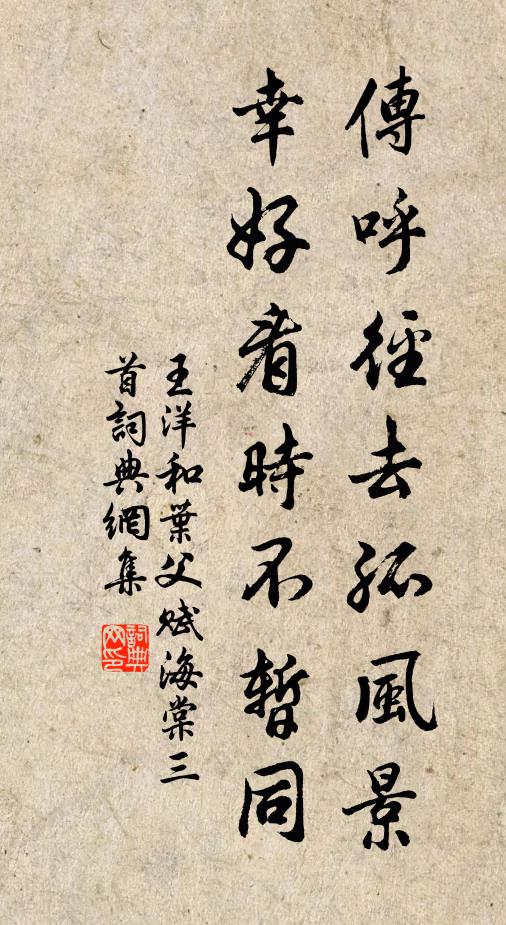 傳呼徑去孤風景
幸好看時不暫同
王洋和葉父賦海棠三
首詞典網集
詞典
网印